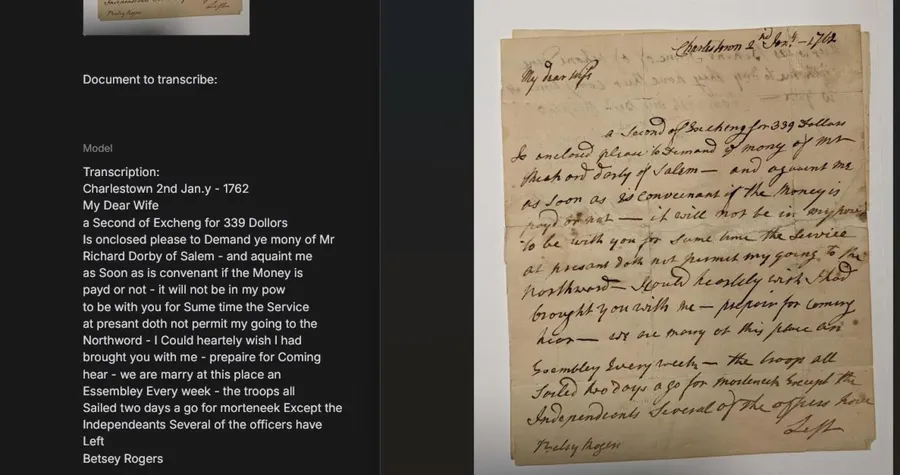 Left
Betsy Rogers
Document to transcribe:
Model
Transcription:
Charlestown 2nd Jan.y - 1762
My Dear Wife
a Second of Excheng for 339 Dollors
Is onclosed please to Demand ye mony of Mr
Richard Dorby of Salem - and aquaint me
as Soon as is convenant if the Money is
payd or not - it will not be in my pow
to be with you for Sume time the Service
at presant doth not permit my going to the
Northword - I Could heartely wish I had
brought you with me - prepaire for Coming
hear - we are marry at this place an
Essembley Every week - the troops all
Sailed two days a go for morteneek Except the
Independeants Several of the officers have
Left
Betsey Rogers
Charlestown 2nd Jany - 1762
My dear Wife
a Second of Excheng for 339 Dollors
Is onclosed please to Demand ye mony of Mr
Richard Dorby of Salem — and aquaint me
as soon as is convenant if the Money is
payd or not — it will not be in my pow
to be with you for Sume time the Service
at presant doth not permit my going to the
Northword — I Could heartely wish I had
brought you with me — prepair for Coming
hear — we are marry at this place an
Essembley Every week — the troops all
Sailed two days a go for morteneek Except the
Independents Several of the officers have
Left
Betsy Rogers